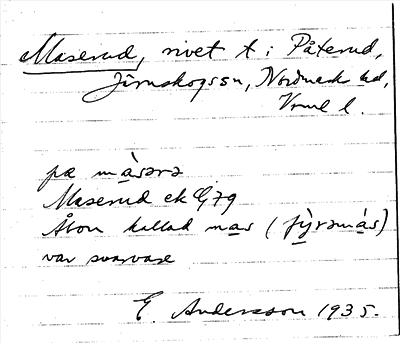 Maserud, rivet t. i Påterud,
Järnskogssn, Nordmarks hd,
Vrml l.
på màsərə
Maserud ek 1/4 79
Åbon kallad mas (fỳrəmás)
var svarvare
E. Andersson 1935.